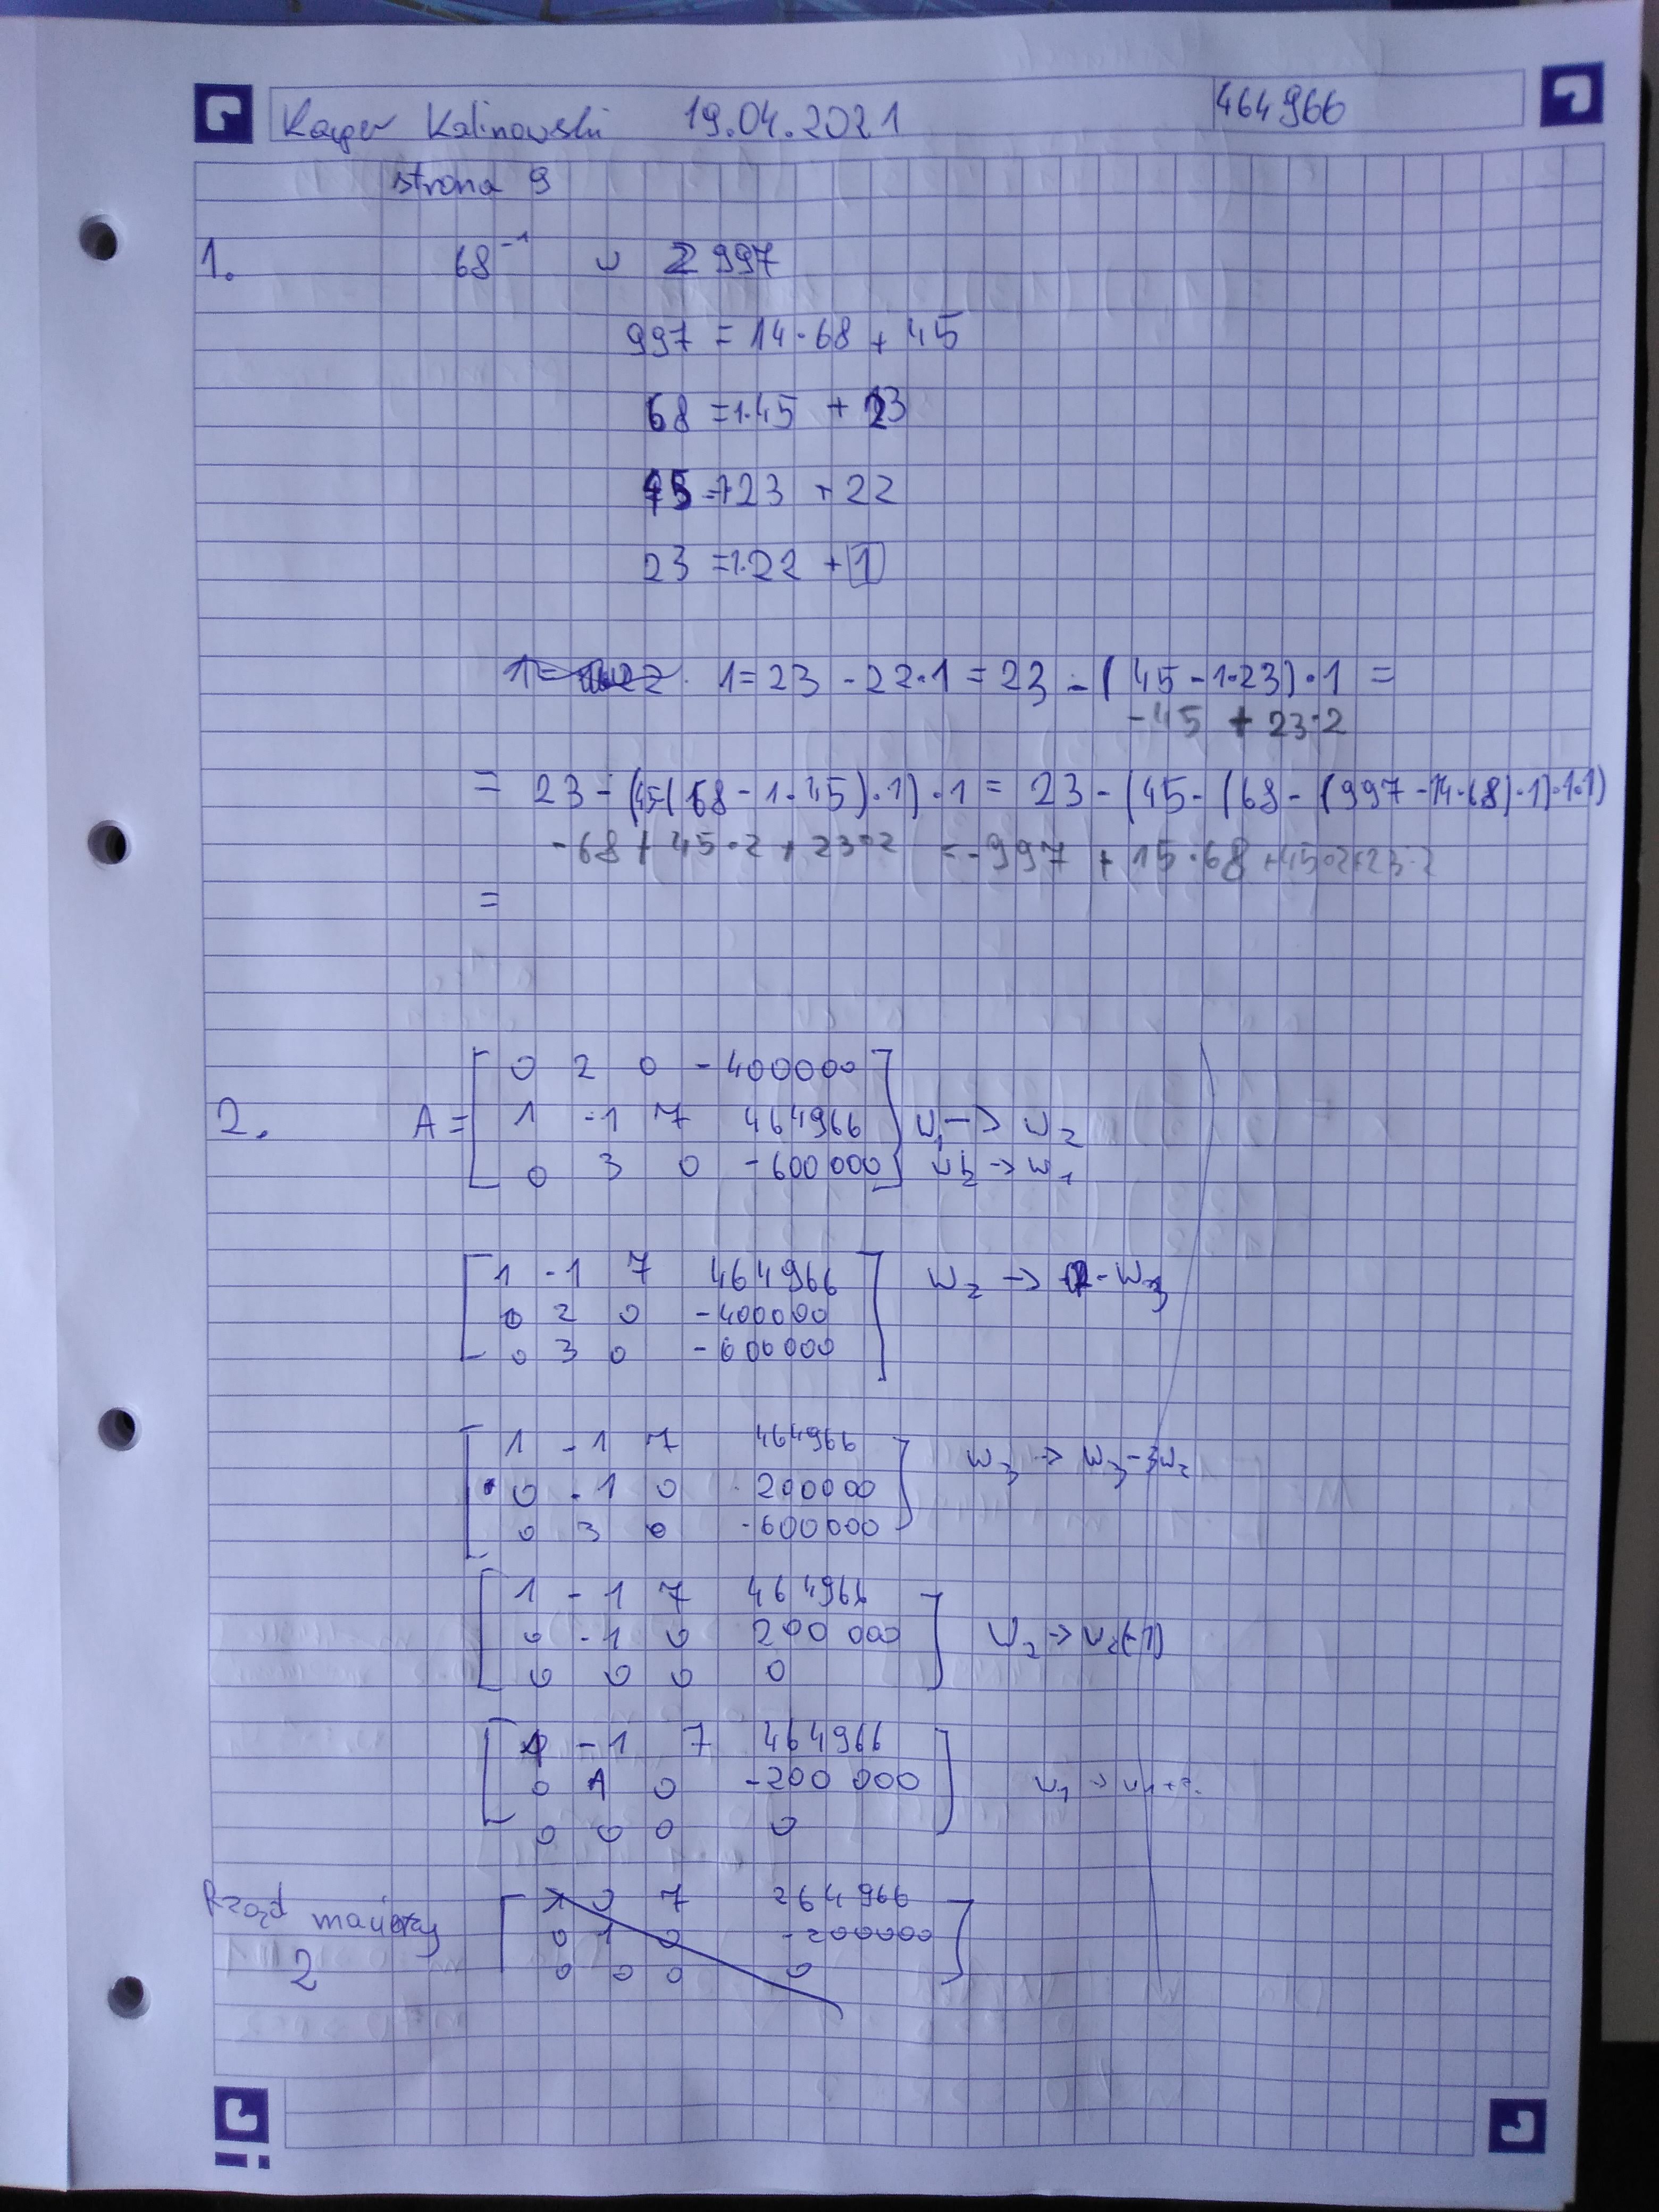 Kacper Kalinowski 19.04.2021 464966
strona 9
1. 68⁻¹ w Z 997
997 = 14·68 + 45
68 = 1·45 + 23
45 = 1·23 + 22
23 = 1·22 + 1
1 = 23 - 22·1 = 23 - (45 - 1·23)·1 =
-45 + 23·2
= 23 - (45-(68 - 1·45)·1)·1 = 23 - (45 - (68 - (997 - 14·68)·1)·1·1)
-68 + 45·2 + 23·2 = -997 + 15·68 + 45·2+23·2
=
0 2 0 -400000
2. A = 1 -1 7 464966 w1 -> w2
0 3 0 -600000 w2 -> w1
1 -1 7 464966 w2 -> -w3
0 2 0 -400000
0 3 0 -600000
1 -1 7 464966 w3 -> w3-3w2
0 -1 0 200000
0 3 0 -600000
1 -1 7 464966
0 -1 0 200 000 w2 -> w2(-1)
0 0 0 0
1 -1 7 464966
0 1 0 -200 000 w1 -> w1+
0 0 0 0
Rząd macierzy 1 0 7 264966
0 1 0 -200000
2 0 0 0 0